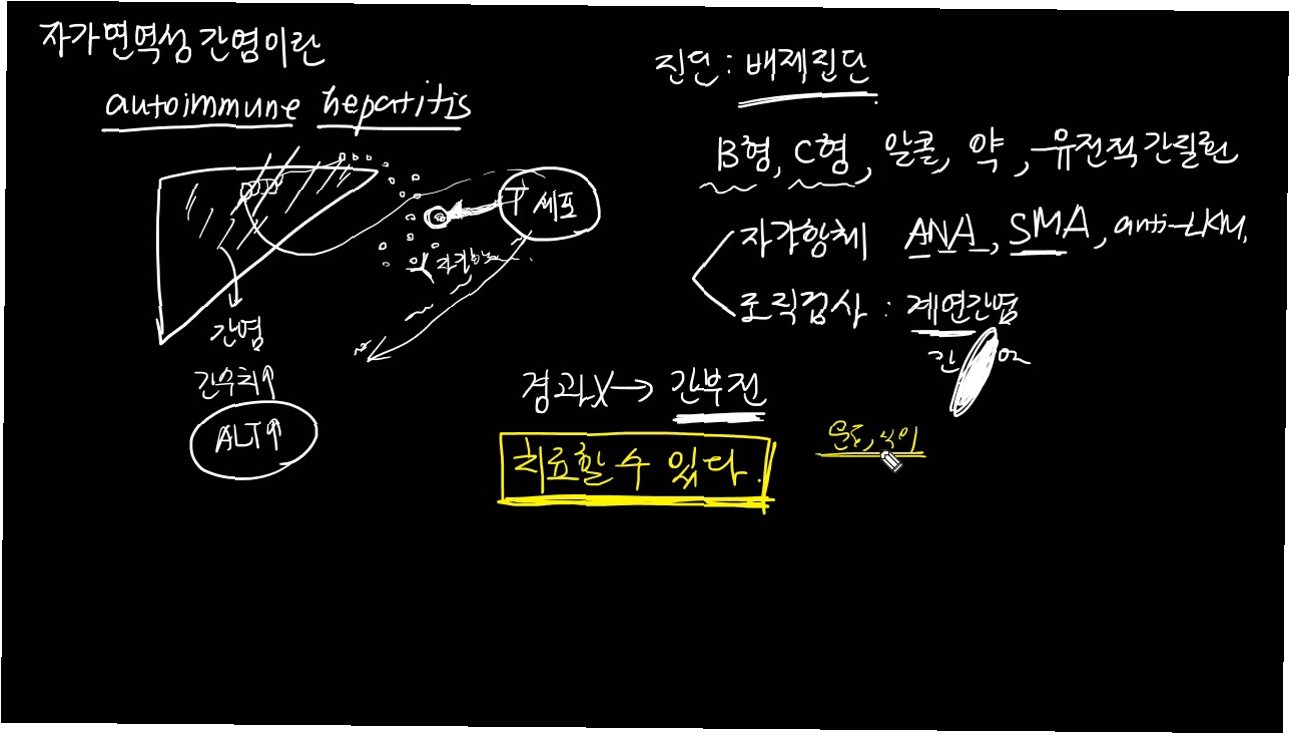 자가면역성 간염이란
autoimmune hepatitis
T 세포
간염
간수치↑
ALT↑
진단 : 배제진단
B형, C형, 알콜, 약, 유전적 간질환
자가항체 ANA, SMA, anti-LKM,
조직검사 : 계면간염
간
경과X→ 간부전
치료할 수 있다.